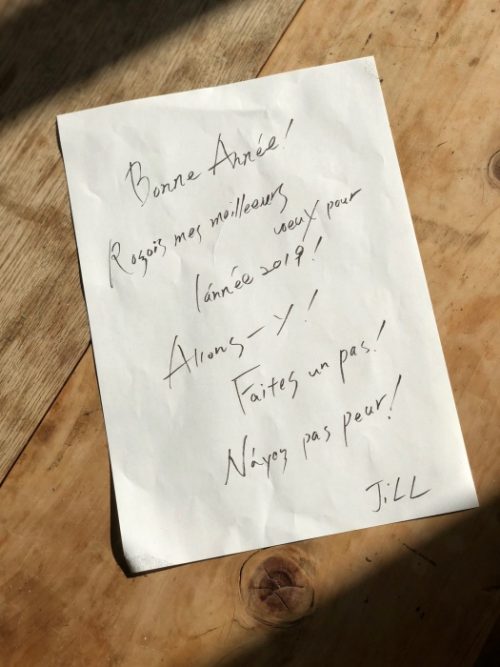 Bonne Année!
Reçois mes meilleurs
voeux pour
l'année 2019!
Allons-y!
Faites un pas!
N'ayez pas peur!
JiLL